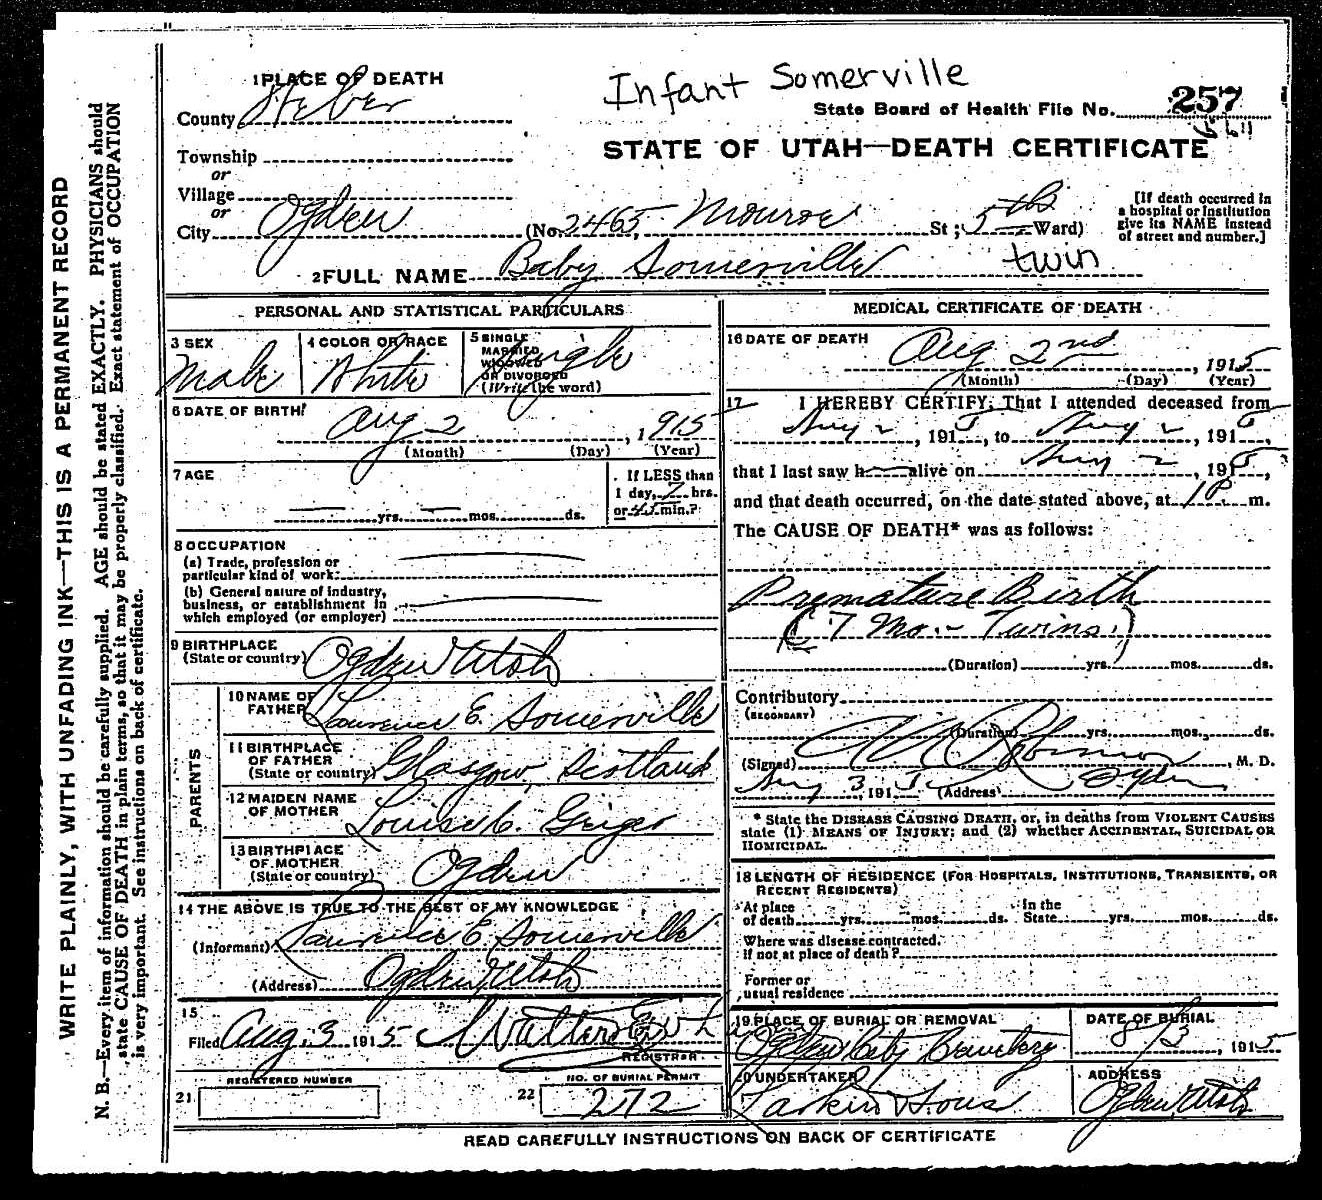 Infant Somerville
1 PLACE OF DEATH
County Weber
State Board of Health File No. 257
Township
or
Village
or
City Ogden (No. 2465, Monroe St; 5th Ward)
STATE OF UTAH—DEATH CERTIFICATE
[If death occurred in
a hospital or institution
give its NAME instead
of street and number.]
2 FULL NAME Baby Somerville twin
PERSONAL AND STATISTICAL PARTICULARS
3 SEX
Male
4 COLOR OR RACE
White
5 SINGLE
MARRIED
WIDOWED
OR DIVORCED
(Write the word)
Single
6 DATE OF BIRTH
Aug 2, 1915
(Month) (Day) (Year)
7 AGE
yrs. mos. ds.
If LESS than
1 day, 7 hrs.
or 45 min.?
8 OCCUPATION
(a) Trade, profession or
particular kind of work
(b) General nature of industry,
business, or establishment in
which employed (or employer)
9 BIRTHPLACE
(State or country) Ogden Utah
PARENTS
10 NAME OF
FATHER Laurence E. Somerville
11 BIRTHPLACE
OF FATHER
(State or country) Glasgow, Scotland
12 MAIDEN NAME
OF MOTHER Louise C. Geiger
13 BIRTHPLACE
OF MOTHER
(State or country) Ogden
14 THE ABOVE IS TRUE TO THE BEST OF MY KNOWLEDGE
(Informant) Laurence E Somerville
(Address) Ogden Utah
15
Filed Aug. 3 1915
REGISTRAR
REGISTERED NUMBER
21
NO. OF BURIAL PERMIT
22 272
MEDICAL CERTIFICATE OF DEATH
16 DATE OF DEATH
Aug 2nd, 1915
(Month) (Day) (Year)
17 I HEREBY CERTIFY, That I attended deceased from
Aug 2, 1915, to Aug 2, 1915,
that I last saw h alive on Aug 2, 1915,
and that death occurred, on the date stated above, at 1 P. m.
The CAUSE OF DEATH* was as follows:
Premature Birth
(7 Mo. - Twins.)
(Duration) yrs. mos. ds.
Contributory
(SECONDARY)
(Duration) yrs. mos. ds.
(Signed) Robinson, M. D.
Aug 3, 1915 (Address) Ogden
* State the DISEASE CAUSING DEATH, or, in deaths from VIOLENT CAUSES
state (1) MEANS OF INJURY; and (2) whether ACCIDENTAL, SUICIDAL OR
HOMICIDAL.
18 LENGTH OF RESIDENCE (FOR HOSPITALS, INSTITUTIONS, TRANSIENTS, OR
RECENT RESIDENTS)
At place
of death yrs. mos. ds.
In the
State yrs. mos. ds.
Where was disease contracted.
if not at place of death?
Former or
usual residence
19 PLACE OF BURIAL OR REMOVAL
Ogden City Cemetery
DATE OF BURIAL
8/3, 1915
20 UNDERTAKER
Larkin & Sons
ADDRESS
Ogden Utah
READ CAREFULLY INSTRUCTIONS ON BACK OF CERTIFICATE
WRITE PLAINLY, WITH UNFADING INK—THIS IS A PERMANENT RECORD
N. B.—Every item of information should be carefully supplied. AGE should be stated EXACTLY. PHYSICIANS should
state CAUSE OF DEATH in plain terms, so that it may be properly classified. Exact statement of OCCUPATION
is very important. See instructions on back of certificate.